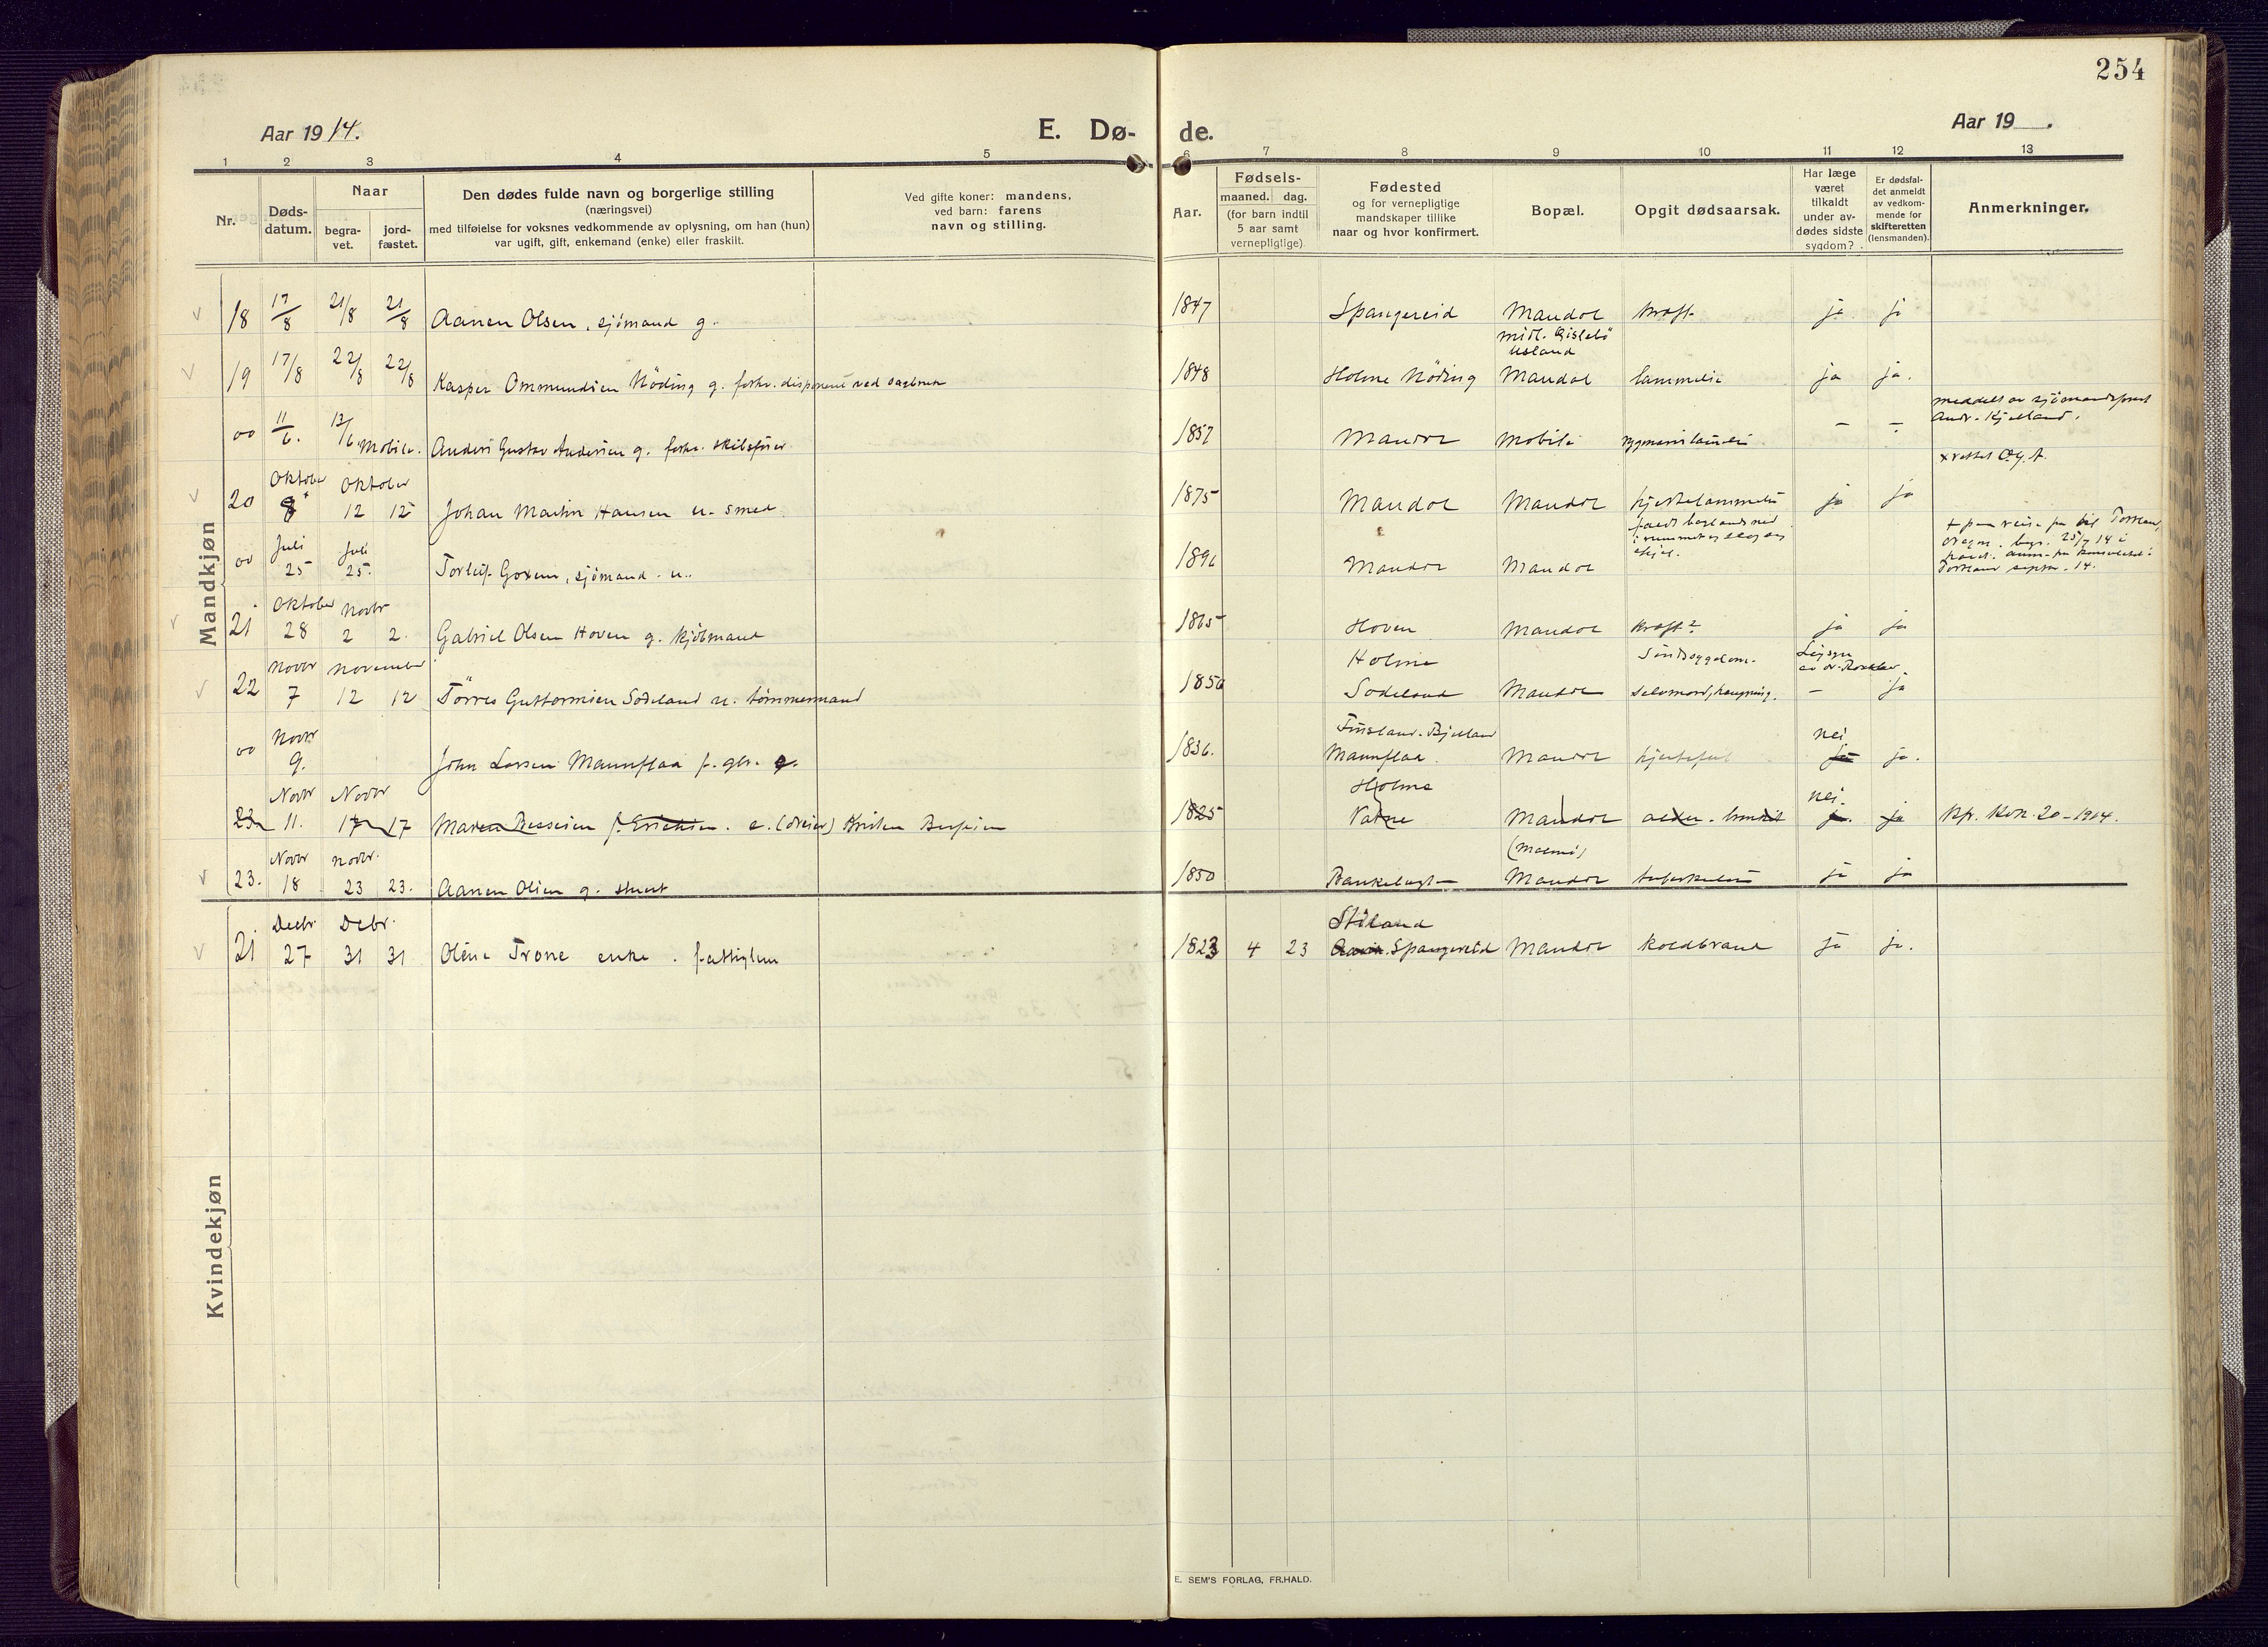 254
Aar 19 14.
E. Dø-
de.
Aar 19 .
1 2 3 4 5 6 7 8 9 10 11 12 13
Nr.
Døds-
datum.
Naar
begra-
vet.
jord-
fæstet.
Den dødes fulde navn og borgerlige stilling
(næringsvei)
med tilføielse for voksnes vedkommende av oplysning, om han (hun)
var ugift, gift, enkemand (enke) eller fraskilt.
Ved gifte koner: mandens,
ved barn: farens
navn og stilling.
Aar.
Fødsels-
maaned. dag.
(for barn indtil
5 aar samt
vernepligtige)
Fødested
og for vernepligtige
mandskaper tillike
naar og hvor konfirmert.
Bopæl.
Opgit dødsaarsak.
Har læge
været
tilkaldt
under av-
dødes sidste
sygdom?
Er dødsfal-
det anmeldt
av vedkom-
mende for
skifteretten
(lensmanden).
Anmerkninger.
Mandkjøn
18 17/8 21/8 21/8 Aanen Olsen, sjömand g. 1847 Spangereid Mandal kræft ja ja
midl. Gislebö
Usland
19 17/8 22/8 22/8 Kasper Ommundsen Nöding g. forhv. disponent ved sagbruk 1848 Holme Nöding Mandal lammelse ja ja.
meddelt av sjömandsprest
Andr. Kjelland.
00 11/6. 13/6 Mobile. Anders Gustav Andersen g. forhv. skibsfører 1857 Mandal Mobile rygmarvslammelse – –
x rettet
Oktober Oktober
20 8 12 12 Johan Martin Hansen u. smed 1875 Mandal Mandal hjertelammelse ja ja
Juli Juli
00 25 25. Torleif, sjömand. u. 1896 Mandal Mandal
Portland septbr. 14.
Oktober Novbr
21 28 2 2. Gabriel Olsen Hoven g. kjöbmand 1865 Hoven Mandal kræft? ja ja
Novbr November Holme Sindssygdom. Ligsyn
22 7 12 12 Törres Guttormsen Sodeland u. tömmermand 1850 Sodeland Mandal selvmord, hængning. – ja
Novbr Finsland-Bjelland nei
00 9. John Larsen Mannflaa f. gbr. 1836. Mannflaa. Mandal hjertefeil ja ja.
Novbr Novbr Holme nei.
23 11. 17 17 Maren f. Erichsen. e. (dreier) 1825 Valne Mandal ja. ja Kfr. Kvk. 20 – 1914.
Novbr Novbr. (Malmö)
23. 18 23 23. Aanen Olsen g. stuert 1850 Mandal tuberkulose ja ja
Kvindekjøn
Decbr. Debr. Stiland
21 27 31 31 Oline Trone enke. fattiglem 1823 4 23 Spangereid Mandal koldbrand ja ja.
E. SEM'S FORLAG, FR.HALD.